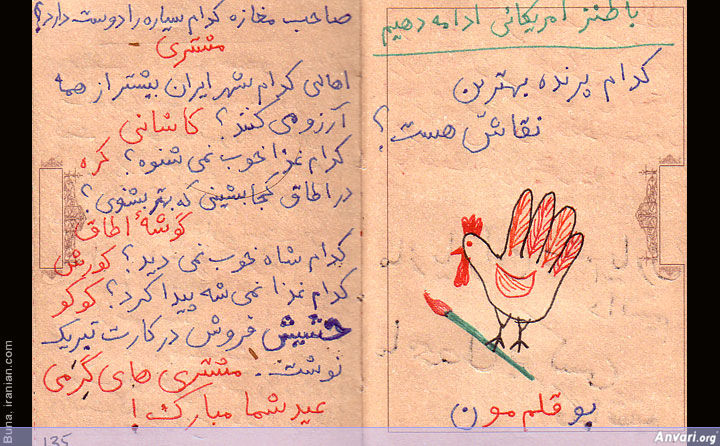 با طنز امریکائی ادامه دهیم
کدام پرنده بهترین
نقاش هست؟
بوقلمون
صاحب مغازه کدام سیاره را دوست دارد؟
مشتری
اهالی کدام شهر ایران بیشتر از همه
آرزو می کنند؟ کاشانی
کدام غذا خوب نمی شنوه؟ کره
در اطاق کجا بشینی که بهتر بشنوی؟
گوشهٔ اطاق
کدام شاه خوب نمی دید؟ کورش
کدام غذا نمی شه پیدا کرد؟ کوکو
حشیش فروش در کارت تبریک
نوشت: مشتری های گِرَمی
عید شما مبارک!
135
Buna. iranian.com
Anvari.org